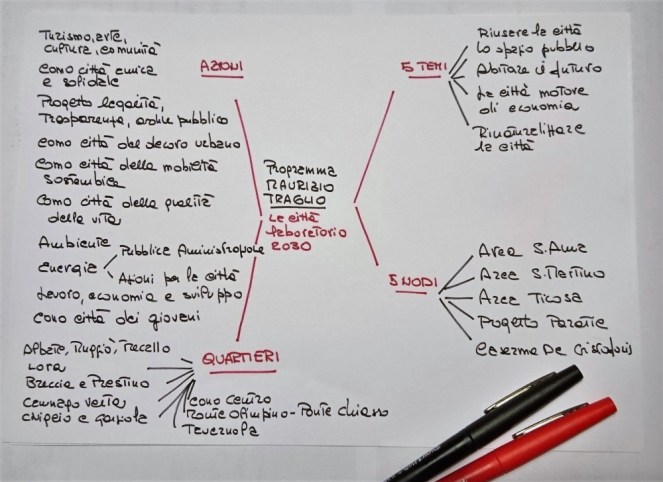 Turismo, arte,
cultura, comunità
Como città amica
e solidale
Progetto legalità,
Trasparenza, ordine pubblico
Como città del decoro urbano
Como città della mobilità
sostenibile
Como città della qualità
della vita
Ambiente
energie
Pubblica Amministrazione
Azioni per la città
Lavoro, economia e sviluppo
Como città dei giovani
AZIONI
Programma
MAURIZIO
TRAGLIO
La città
laboratorio
2030
5 TEMI
Riusare la città
Lo spazio pubblico
Abitare il futuro
La città motore
di economia
Rinaturalizzare
la città
5 NODI
Area S. Anna
Area S. Martino
Area Ticosa
Progetto Paratie
Caserma De Cristoforis
QUARTIERI
Albate, Muggiò, Trecallo
Lora
Breccia e Prestino
Camnago Volta
Como Centro
Ponte Olimpino - Ponte Chiasso
Tavernola